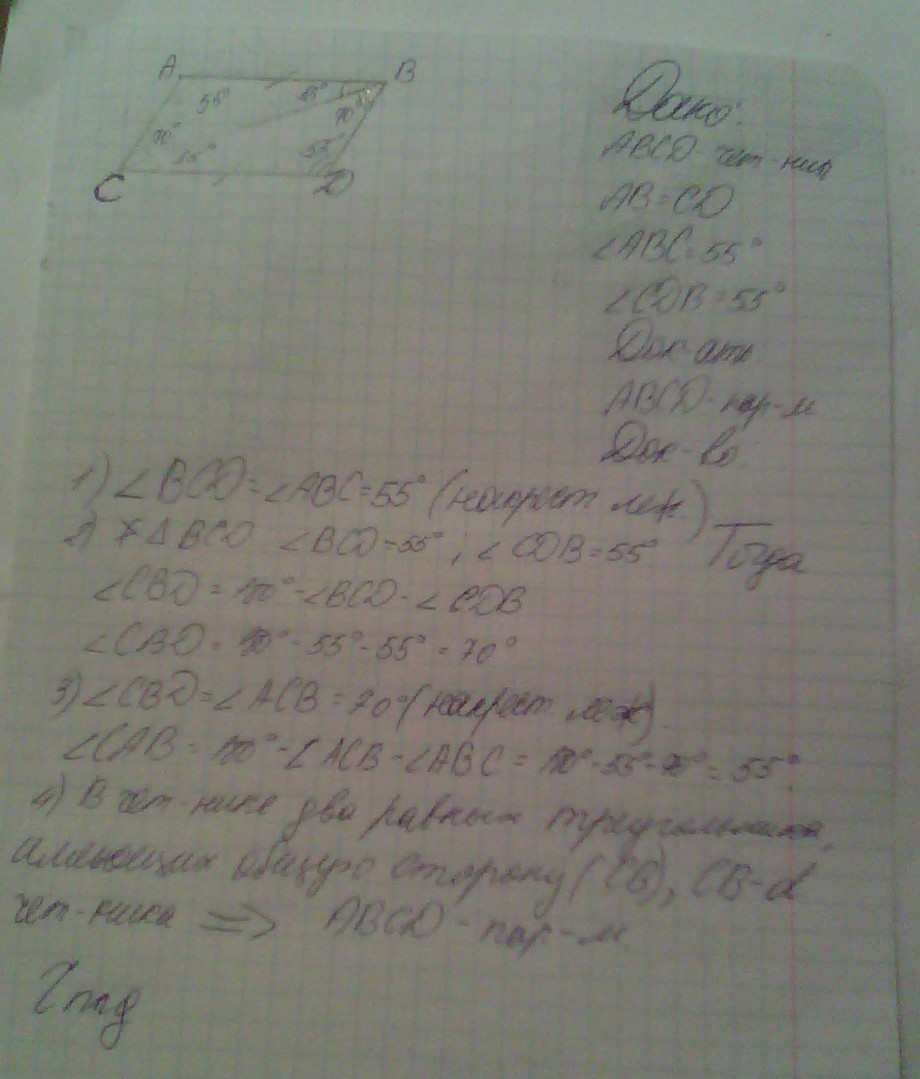 A
B
55°
55°
70°
70°
55°
55°
C
D
Дано:
ABCD - чет-ник
AB = CD
∠ABC = 55°
∠CDB = 55°
Док-ать
ABCD - пар-м
Док-во
1) ∠BCD = ∠ABC = 55° (накрест леж.)
2) ΔBCD ∠BCD = 55° ; ∠CDB = 55° Тогда
∠CBD = 180° - ∠BCD - ∠CDB
∠CBD = 180° - 55° - 55° = 70°
3) ∠CBD = ∠ACB = 70° (накрест леж)
∠CAB = 180° - ∠ACB - ∠ABC = 180° - 55° - 70° = 55°
4) В чет-нике два равных треугольника,
имеющих общую сторону (CB), CB - d
чет-ника => ABCD - пар-м
Чтд